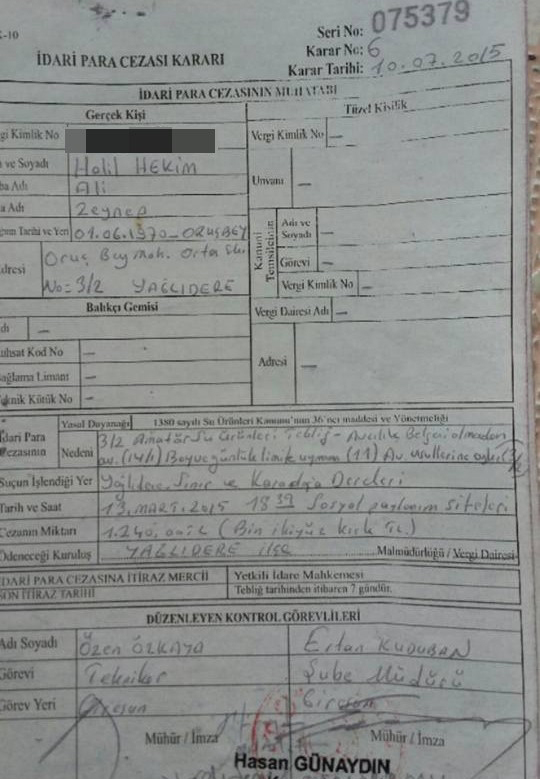 -10
Seri No: 075379
İDARİ PARA CEZASI KARARI
Karar No: 6
Karar Tarihi: 10.07.2015
İDARİ PARA CEZASININ MUHATABI
Gerçek Kişi
Tüzel Kişilik
gi Kimlik No
Vergi Kimlik No —
ı ve Soyadı Halil HEKİM
Unvanı —
ba Adı Ali
a Adı Zeynep
Kanuni Temsilcinin
Adı ve Soyadı —
ğum Tarihi ve Yeri 01.06.1970 - ORUÇBEY
Görevi —
dresi Oruç Bey mah. Orta
No= 3/2 YAĞLIDERE
Vergi Kimlik No —
Balıkçı Gemisi
Vergi Dairesi Adı —
dı —
Adresi —
uhsat Kod No —
ağlama Limanı —
eknik Kütük No —
Yasal Dayanağı 1380 sayılı Su Ürünleri Kanunu'nun 36'ncı maddesi ve Yönetmeliği
İdari Para Cezasının
Nedeni 3/2 Amatör Su Ürünleri Tebliğ - Avcılık Belgesi olmadan
av. (14/1) Boyuca günlük limite uymama (11) Av usullerine
Suçun İşlendiği Yer Yağlıdere, Sınır ve Karaovacık Dereleri
Tarih ve Saat 13. MART. 2015 18 39 Sosyal paylaşım siteleri
Cezanın Miktarı 1.240.00 TL (Bin ikiyüz kırk TL.)
Ödeneceği Kuruluş YAĞLIDERE ilçe Malmüdürlüğü / Vergi Dairesi
DARİ PARA CEZASINA İTİRAZ MERCİİ Yetkili İdare Mahkemesi
SON İTİRAZ TARİHİ Tebliğ tarihinden itibaren 7 gündür.
DÜZENLEYEN KONTROL GÖREVLİLERİ
Adı Soyadı Özen ÖZKAYA Ertan KUDUBAN
Görevi Tekniker Şube Müdürü
Görev Yeri Giresun Giresun
Mühür / İmza Mühür / İmza
Hasan GÜNAYDIN